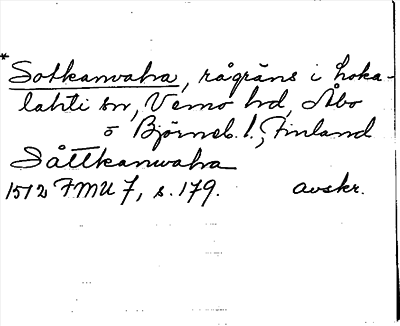 * Sotkanvaha, rågräns i Loka-
lahti sn, Vemo hd, Åbo
o Björneb. l., Finland
Såttkanwaha
1512 FMU 7, s. 179. avskr.